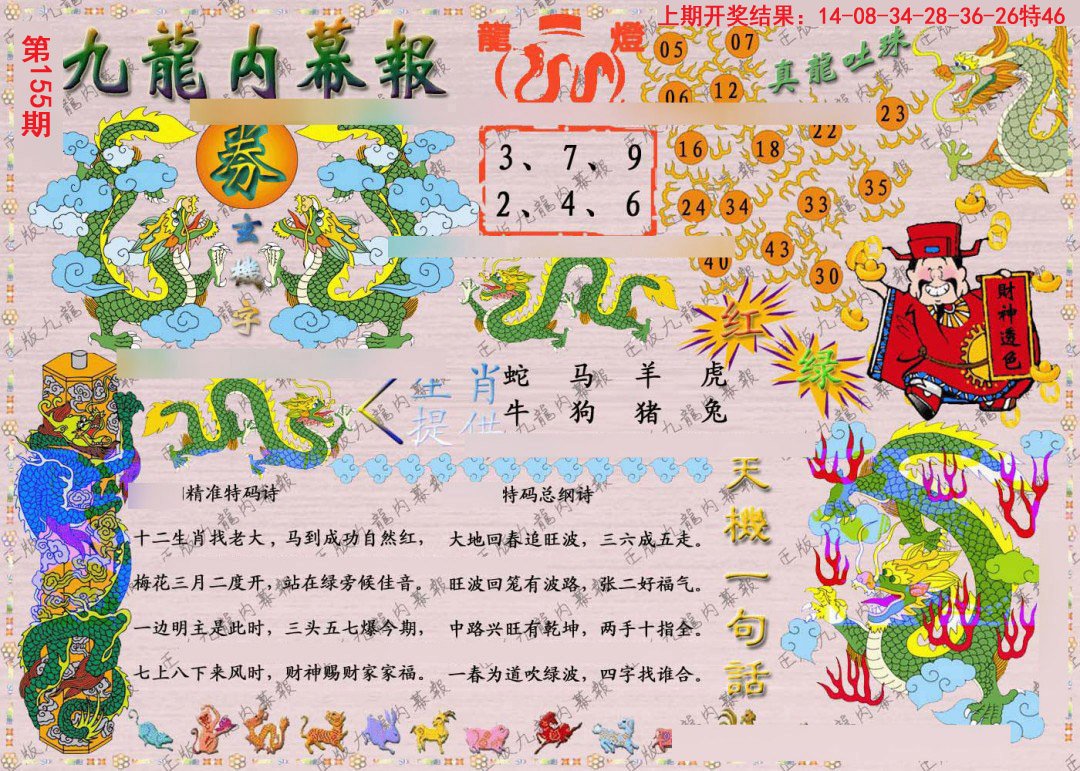 上期开奖结果：14-08-34-28-36-26特46
第155期
九龍内幕報
龍 燈
真龍吐珠
05 07
06 12
22 23
16 18
24 34 33 35
43
40 30
券
玄機字
3、7、9
2、4、6
红
绿
财神透色
生肖
提供
蛇 马 羊 虎
牛 狗 猪 兔
精准特码诗
十二生肖找老大，马到成功自然红，
梅花三月二度开，站在绿旁候佳音。
一边明主是此时，三头五七爆今期，
七上八下来风时，财神赐财家家福。
特码总纲诗
大地回春追旺波，三六成五走。
旺波回笼有波路，张二好福气。
中路兴旺有乾坤，两手十指全。
一春为道吹绿波，四字找谁合。
天機一句話
正版九龍内幕報